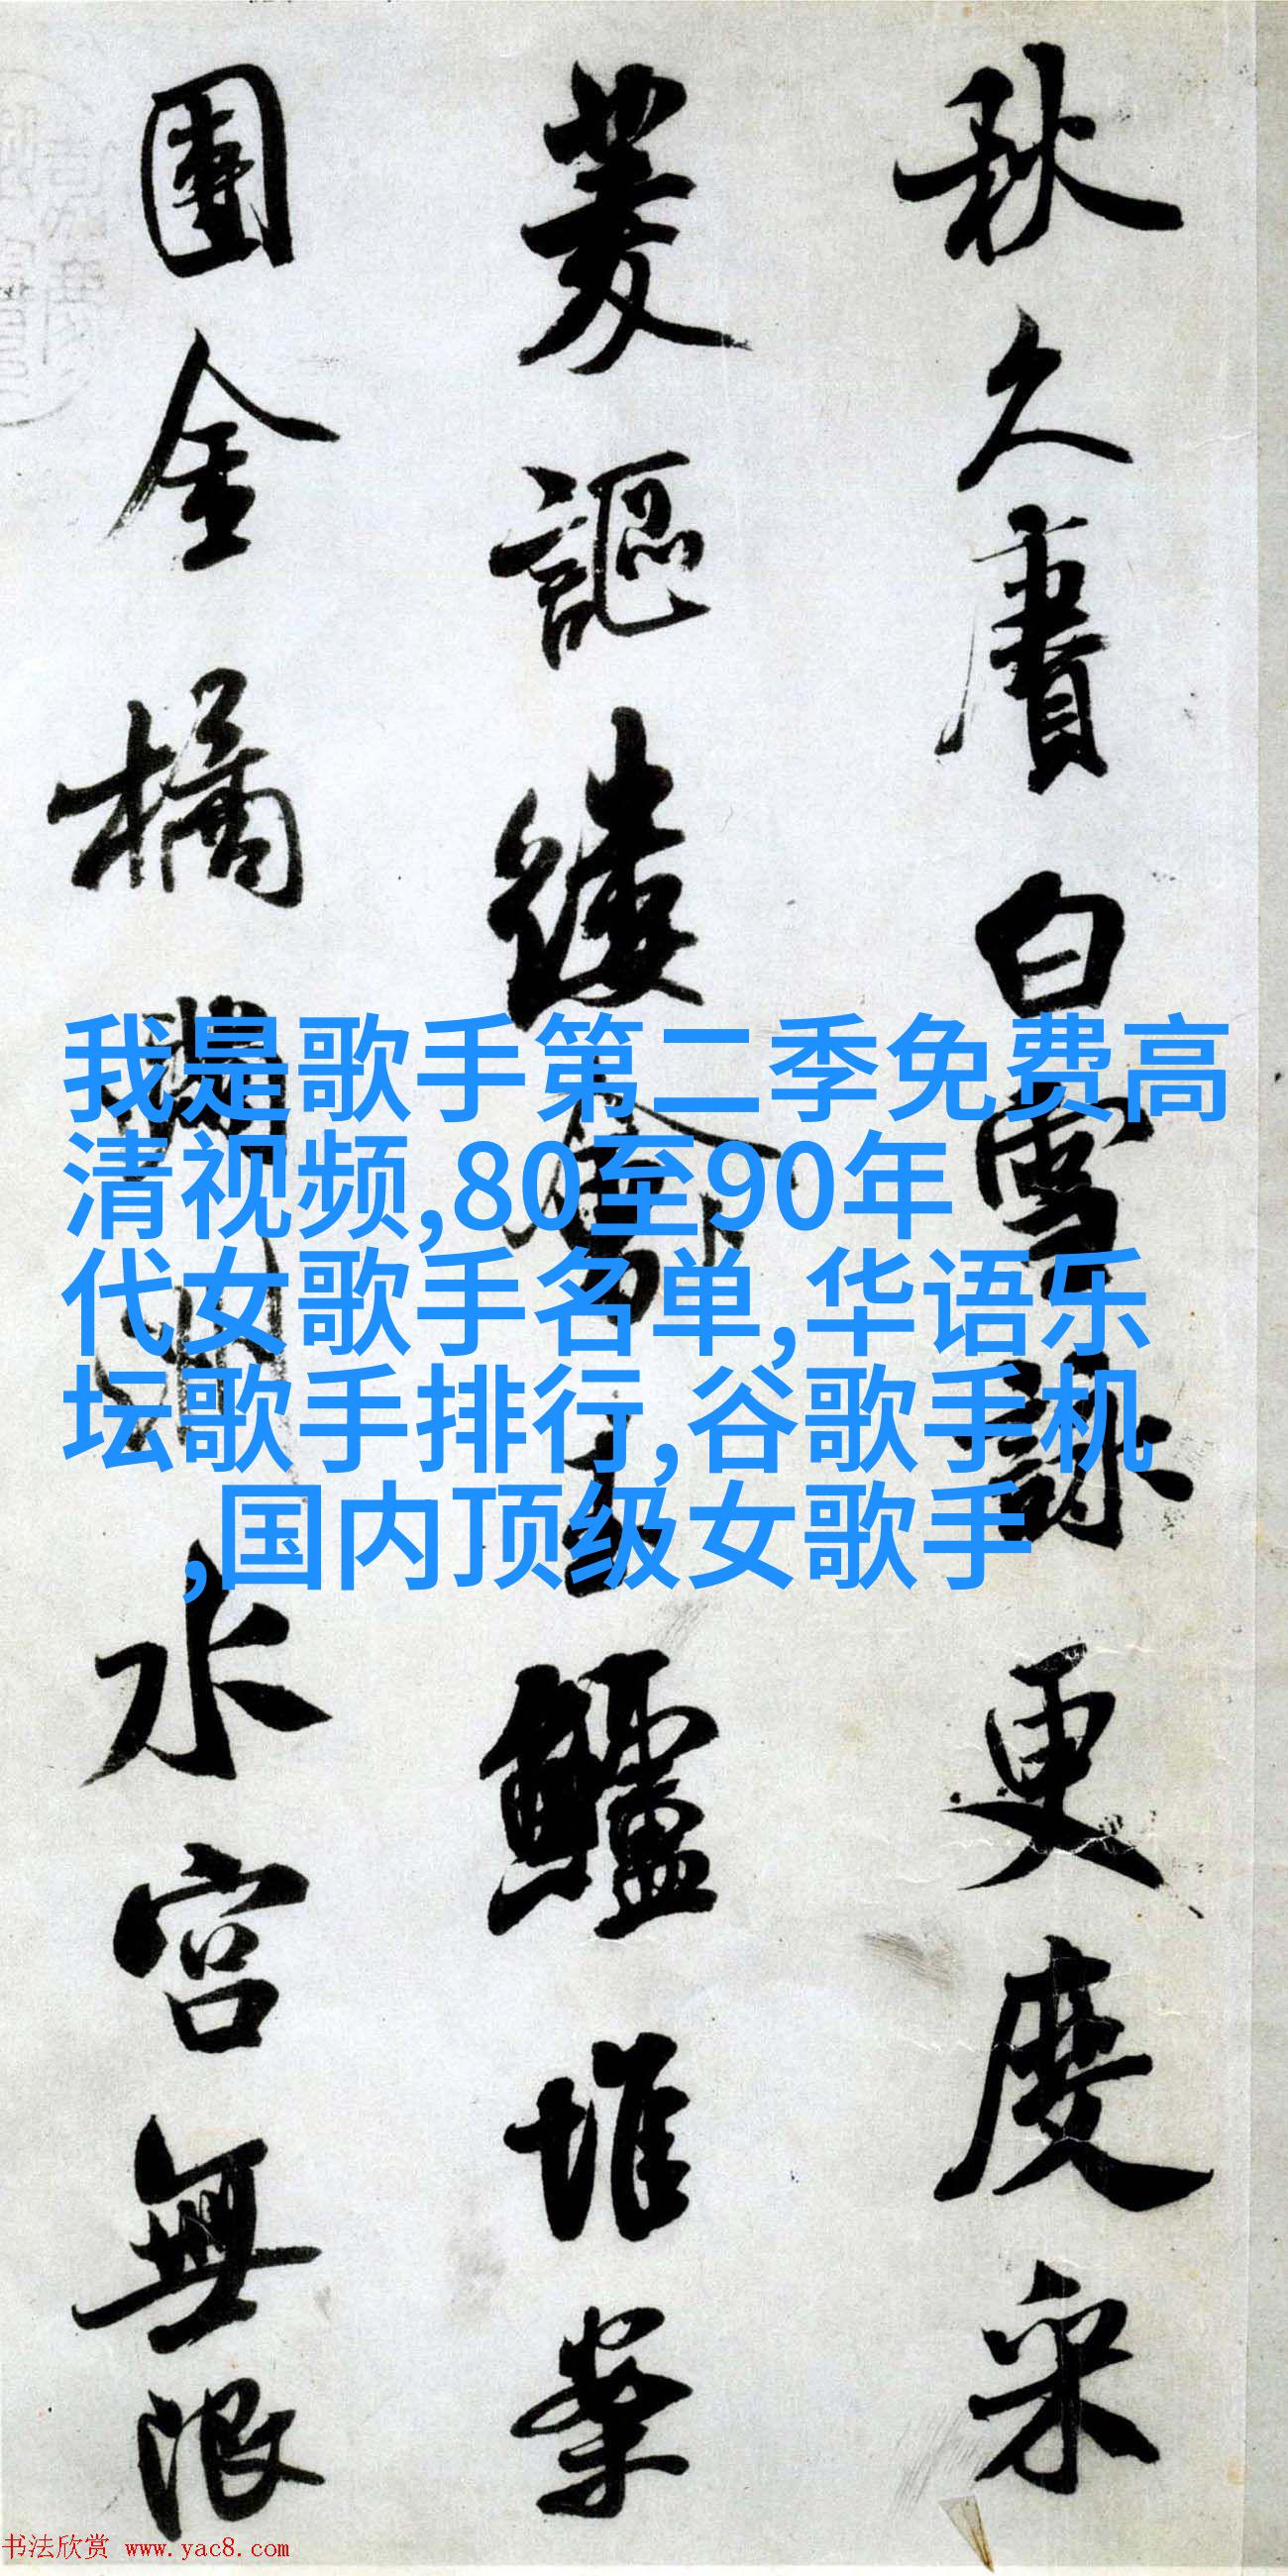 秋久賡白雪詠更度采
菱謳縷玉鱸堆案
團金橘滿洲水宮無限
我是歌手第二季免费高
清视频,80至90年
代女歌手名单,华语乐
坛歌手排行,谷歌手机
,国内顶级女歌手
书法欣赏 www.yac8.com